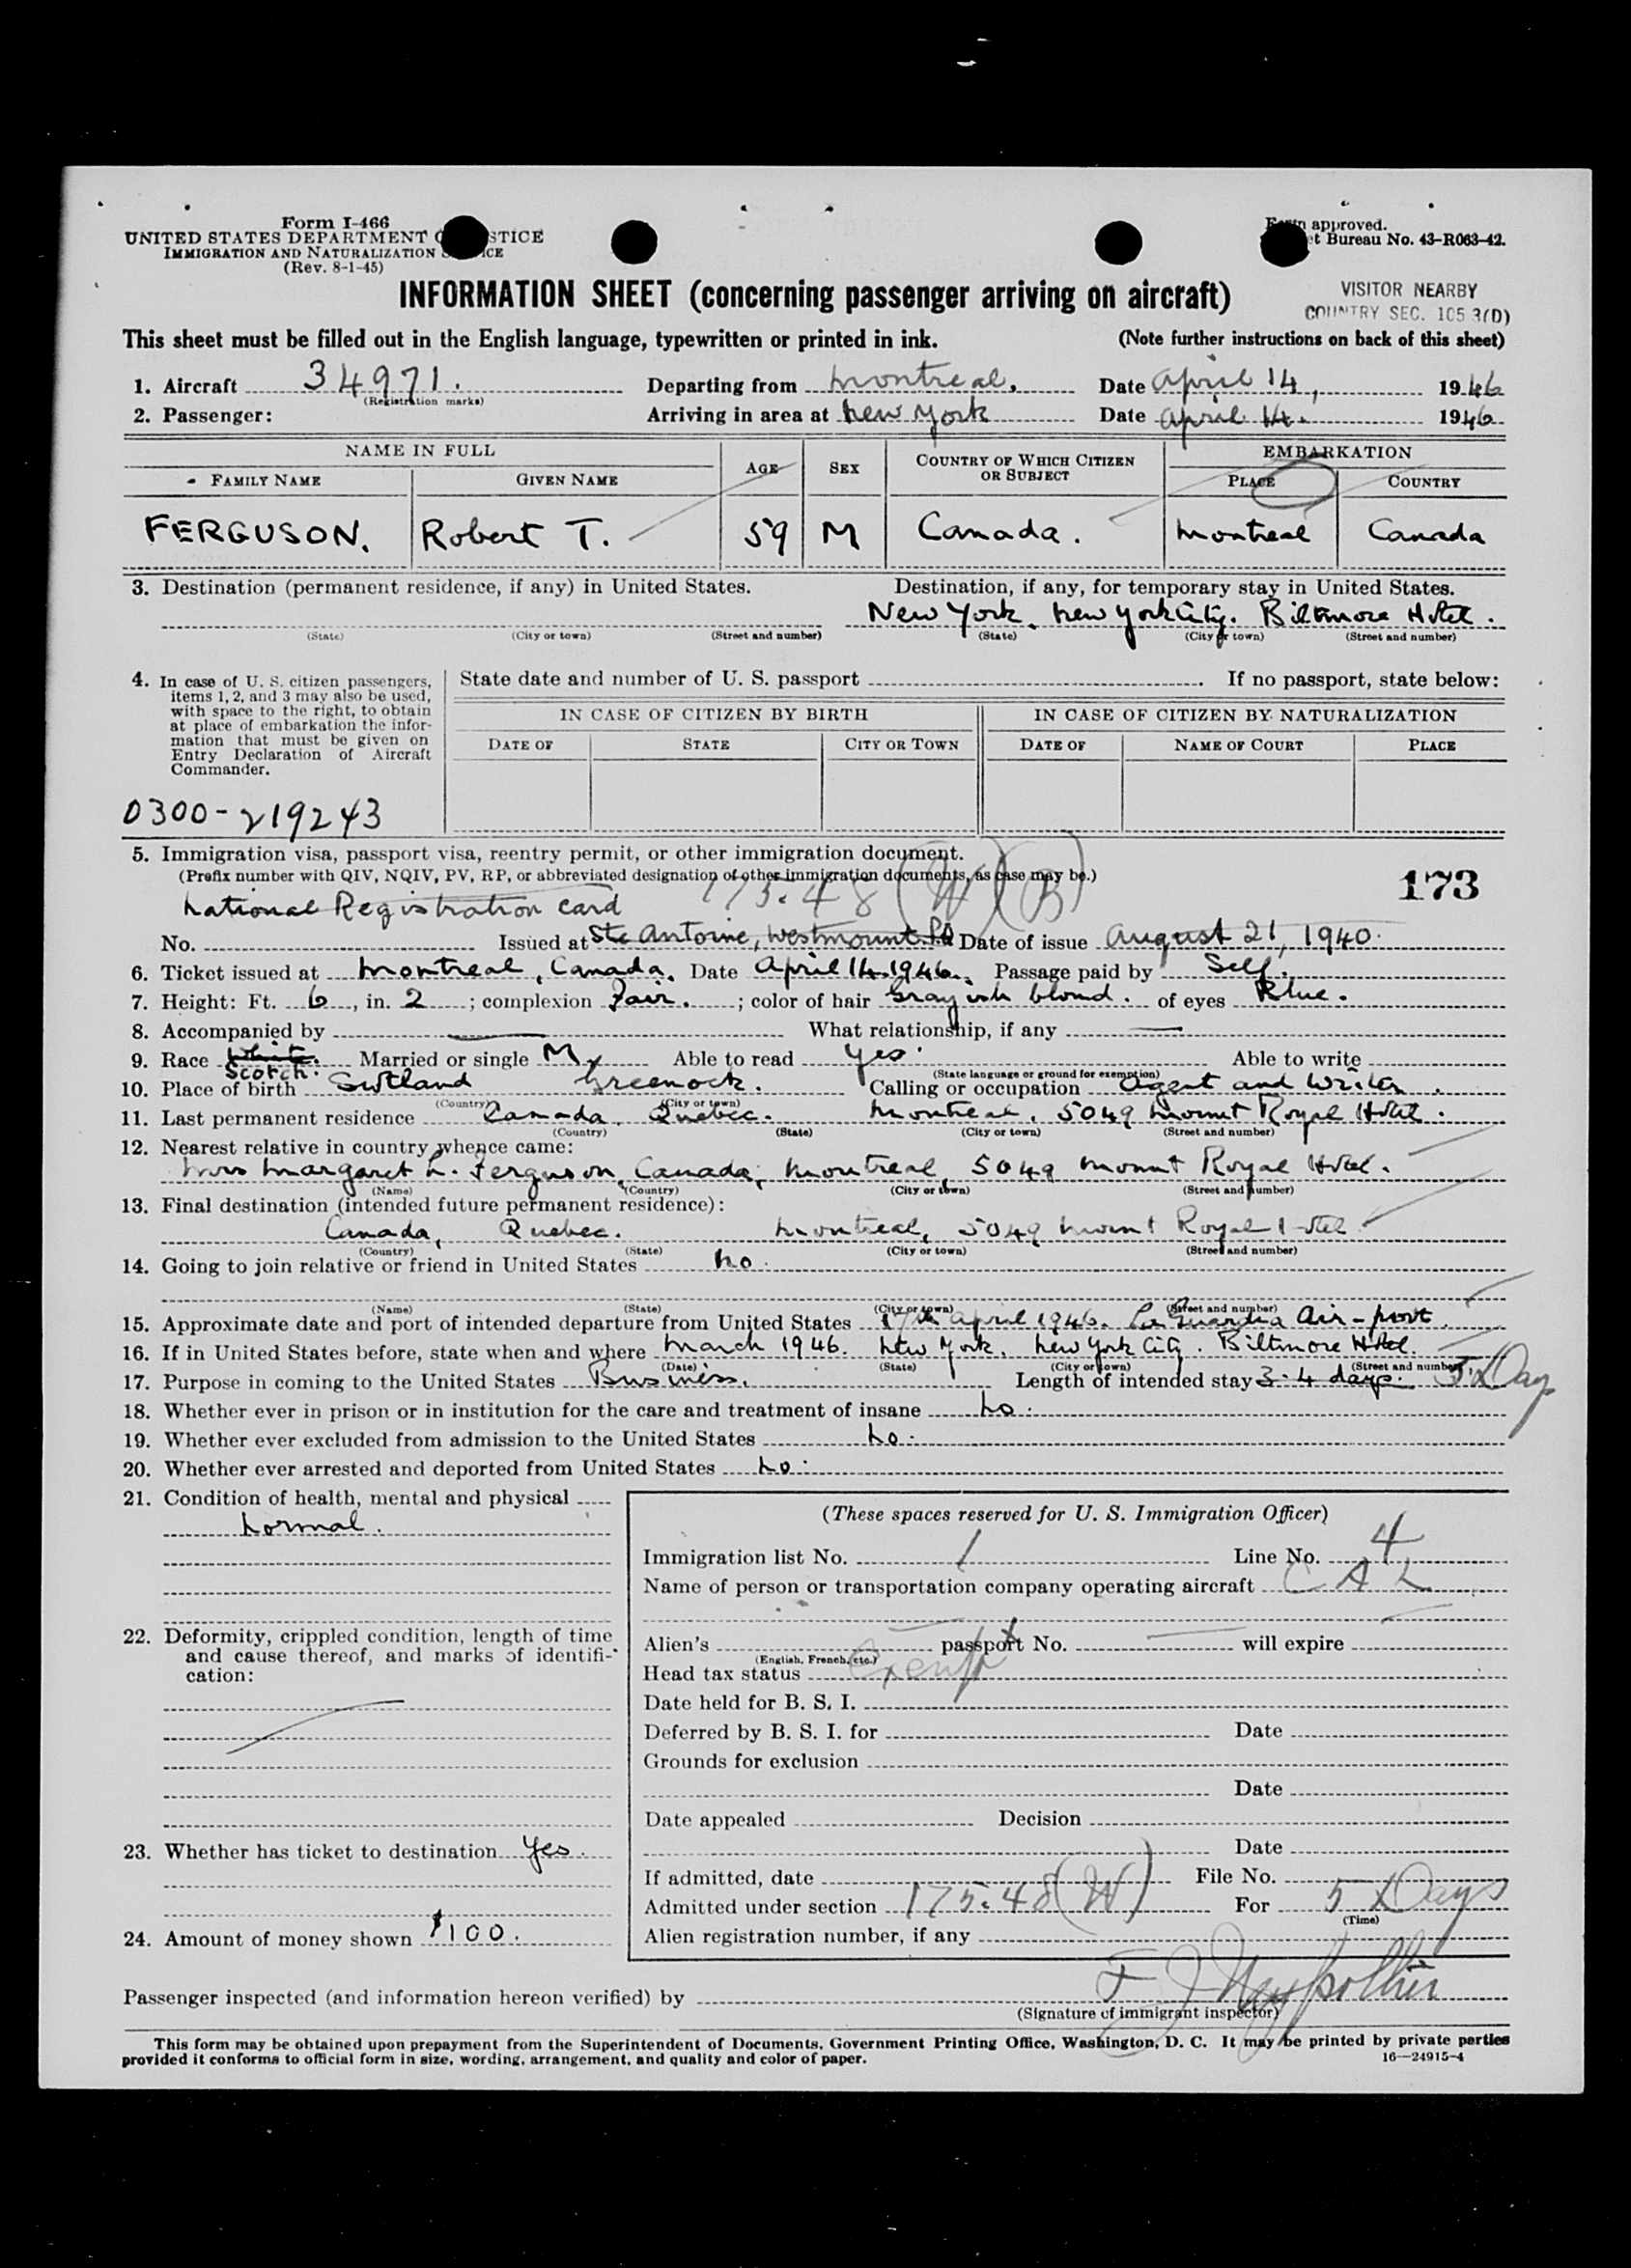 Form I-466
UNITED STATES DEPARTMENT STICE
IMMIGRATION AND NATURALIZATION ICE
(Rev. 8-1-45)
approved.
et Bureau No. 43-R063-42.
INFORMATION SHEET (concerning passenger arriving on aircraft)
VISITOR NEARBY
COUNTRY SEC. 105 3(D)
This sheet must be filled out in the English language, typewritten or printed in ink. (Note further instructions on back of this sheet)
1. Aircraft 34971. Departing from Montreal. Date April 14, 1946
(Registration marks)
2. Passenger: Arriving in area at New York Date April 14. 1946
NAME IN FULL AGE SEX COUNTRY OF WHICH CITIZEN OR SUBJECT EMBARKATION
FAMILY NAME GIVEN NAME PLACE COUNTRY
FERGUSON. Robert T. 59 M Canada. Montreal Canada
3. Destination (permanent residence, if any) in United States. Destination, if any, for temporary stay in United States.
New York. New York City. Biltmore Hotel.
(State) (City or town) (Street and number) (State) (City or town) (Street and number)
4. In case of U. S. citizen passengers, items 1, 2, and 3 may also be used, with space to the right, to obtain at place of embarkation the information that must be given on Entry Declaration of Aircraft Commander.
State date and number of U. S. passport If no passport, state below:
IN CASE OF CITIZEN BY BIRTH IN CASE OF CITIZEN BY NATURALIZATION
DATE OF STATE CITY OR TOWN DATE OF NAME OF COURT PLACE
0300-219243
5. Immigration visa, passport visa, reentry permit, or other immigration document.
(Prefix number with QIV, NQIV, PV, RP, or abbreviated designation of other immigration documents, as case may be.)
173
National Registration Card 175.48 (W)(B)
No. Issued at Ste Antoine, Westmount. P.Q Date of issue August 21, 1940.
6. Ticket issued at Montreal, Canada. Date April 14. 1946. Passage paid by Self.
7. Height: Ft. 6, in. 2; complexion Fair. ; color of hair Grayish blond. of eyes Blue.
8. Accompanied by — What relationship, if any —
9. Race White. Scotch. Married or single M Able to read Yes. Able to write
(State language or ground for exemption)
10. Place of birth Scotland Greenock. Calling or occupation Agent and Writer.
(Country) (City or town)
11. Last permanent residence Canada, Quebec. Montreal, 5049 Mount Royal Hotel.
(Country) (State) (City or town) (Street and number)
12. Nearest relative in country whence came:
Mrs Margaret L. Ferguson, Canada, Montreal, 5049 Mount Royal Hotel.
(Name) (Country) (City or town) (Street and number)
13. Final destination (intended future permanent residence):
Canada, Quebec. Montreal, 5049 Mount Royal Hotel
(Country) (State) (City or town) (Street and number)
14. Going to join relative or friend in United States No.
(Name) (State) (City or town) (Street and number)
15. Approximate date and port of intended departure from United States 17th April 1946. La Guardia Air-port.
16. If in United States before, state when and where March 1946. New York. New York City. Biltmore Hotel.
(Date) (State) (City or town) (Street and number)
17. Purpose in coming to the United States Business. Length of intended stay 3-4 days. 5 Days
18. Whether ever in prison or in institution for the care and treatment of insane No.
19. Whether ever excluded from admission to the United States No.
20. Whether ever arrested and deported from United States No.
21. Condition of health, mental and physical
Normal.
22. Deformity, crippled condition, length of time and cause thereof, and marks of identification:
23. Whether has ticket to destination Yes.
24. Amount of money shown $100.
(These spaces reserved for U. S. Immigration Officer)
Immigration list No. 1 Line No. 4
Name of person or transportation company operating aircraft C A L
Alien's passport No. — will expire
(English, French, etc.)
Head tax status Exempt
Date held for B. S. I.
Deferred by B. S. I. for Date
Grounds for exclusion
Date
Date appealed Decision
Date
If admitted, date File No.
Admitted under section 175.48(W) For 5 Days
(Time)
Alien registration number, if any
Passenger inspected (and information hereon verified) by F J
(Signature of immigrant inspector)
This form may be obtained upon prepayment from the Superintendent of Documents, Government Printing Office, Washington, D. C. It may be printed by private parties
provided it conforms to official form in size, wording, arrangement, and quality and color of paper. 16—24915-4